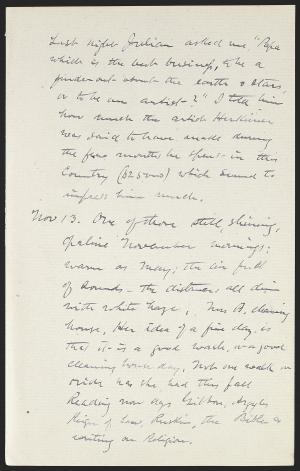 Last night Julian asked me, "Papa
which is the best business, to be a
finder out about the earth & stars,
or to be an artist-?" I told him
how much the artist Herkimer
was said to have made during
the few months he spent in this
Country ($25000) which seemed to
impress him much.
Nov 13. One of those still, shining,
opaline November mornings;
warm as May; the air full
of sounds - the distances all dim
with white haze, Mrs B, cleaning
house, Her idea of a fine day is
that it is a good wash, or a good
cleaning house day. Not one walk or
ride has she had this fall
Reading now days Gibbon, Argyles
Reign of Law, Ruskin, the Bible &
writing on Religion.